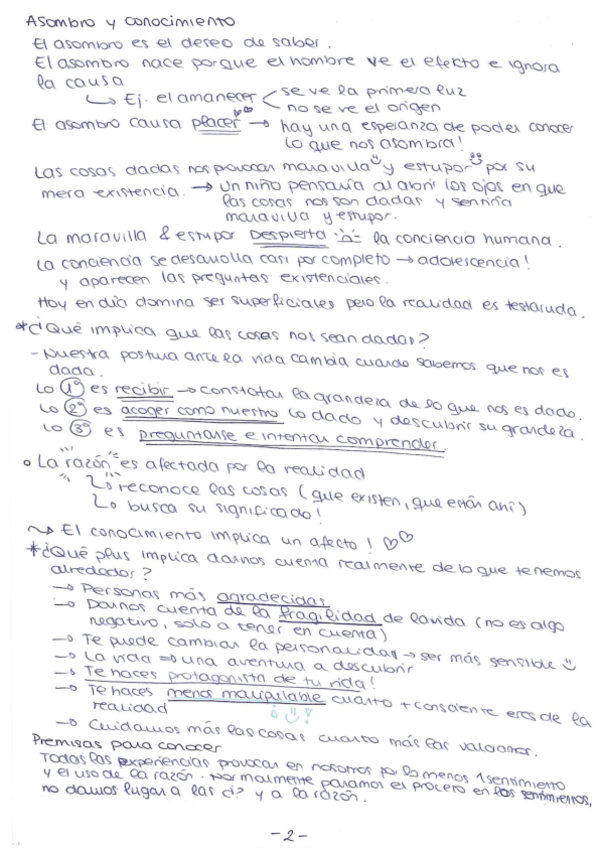 Asombro y conocimiento
El asombro es el deseo de saber.
El asombro nace porque el hombre ve el efecto e ignora
la causa
↳ Ej. el amanecer < se ve la primera luz
no se ve el origen
El asombro causa placer → hay una esperanza de poder conocer
lo que nos asombra!
Las cosas dadas nos provocan maravilla y estupor por su
mera existencia. → Un niño pensaría al abrir los ojos en que
las cosas nos son dadas y sentiría
maravilla y estupor.
La maravilla & estupor DESPIERTA la conciencia humana.
La conciencia se desarrolla casi por completo → adolescencia!
y aparecen las preguntas existenciales.
Hoy en día domina ser superficiales pero la realidad es testaruda.
*¿Qué implica que las cosas nos sean dadas?
- Nuestra postura ante la vida cambia cuando sabemos que nos es
dada.
Lo 1º es recibir → constatar la grandeza de lo que nos es dado.
Lo 2º es acoger como nuestro lo dado y descubrir su grandeza.
Lo 3º es preguntarse e intentar comprender.
La razón es afectada por la realidad
↳ reconoce las cosas (que existen, que están ahí)
↳ busca su significado!
El conocimiento implica un afecto! ♡♡
*¿Qué plus implica darnos cuenta realmente de lo que tenemos
alrededor?
→ Personas más agradecidas
→ Darnos cuenta de la fragilidad de la vida (no es algo
negativo, solo a tener en cuenta)
→ Te puede cambiar la personalidad → ser más sensible
→ La vida ⇒ una aventura a descubrir
→ Te haces protagonista de tu vida!
→ Te haces menos manipulable cuanto + consciente eres de la
realidad
→ Cuidamos más las cosas cuanto más las valoramos.
Premisas para conocer
Todas las experiencias provocan en nosotros por lo menos 1 sentimiento
y el uso de la razón. Normalmente paramos el proceso en los sentimientos,
no damos lugar a las ¿? y a la razón.
-2-